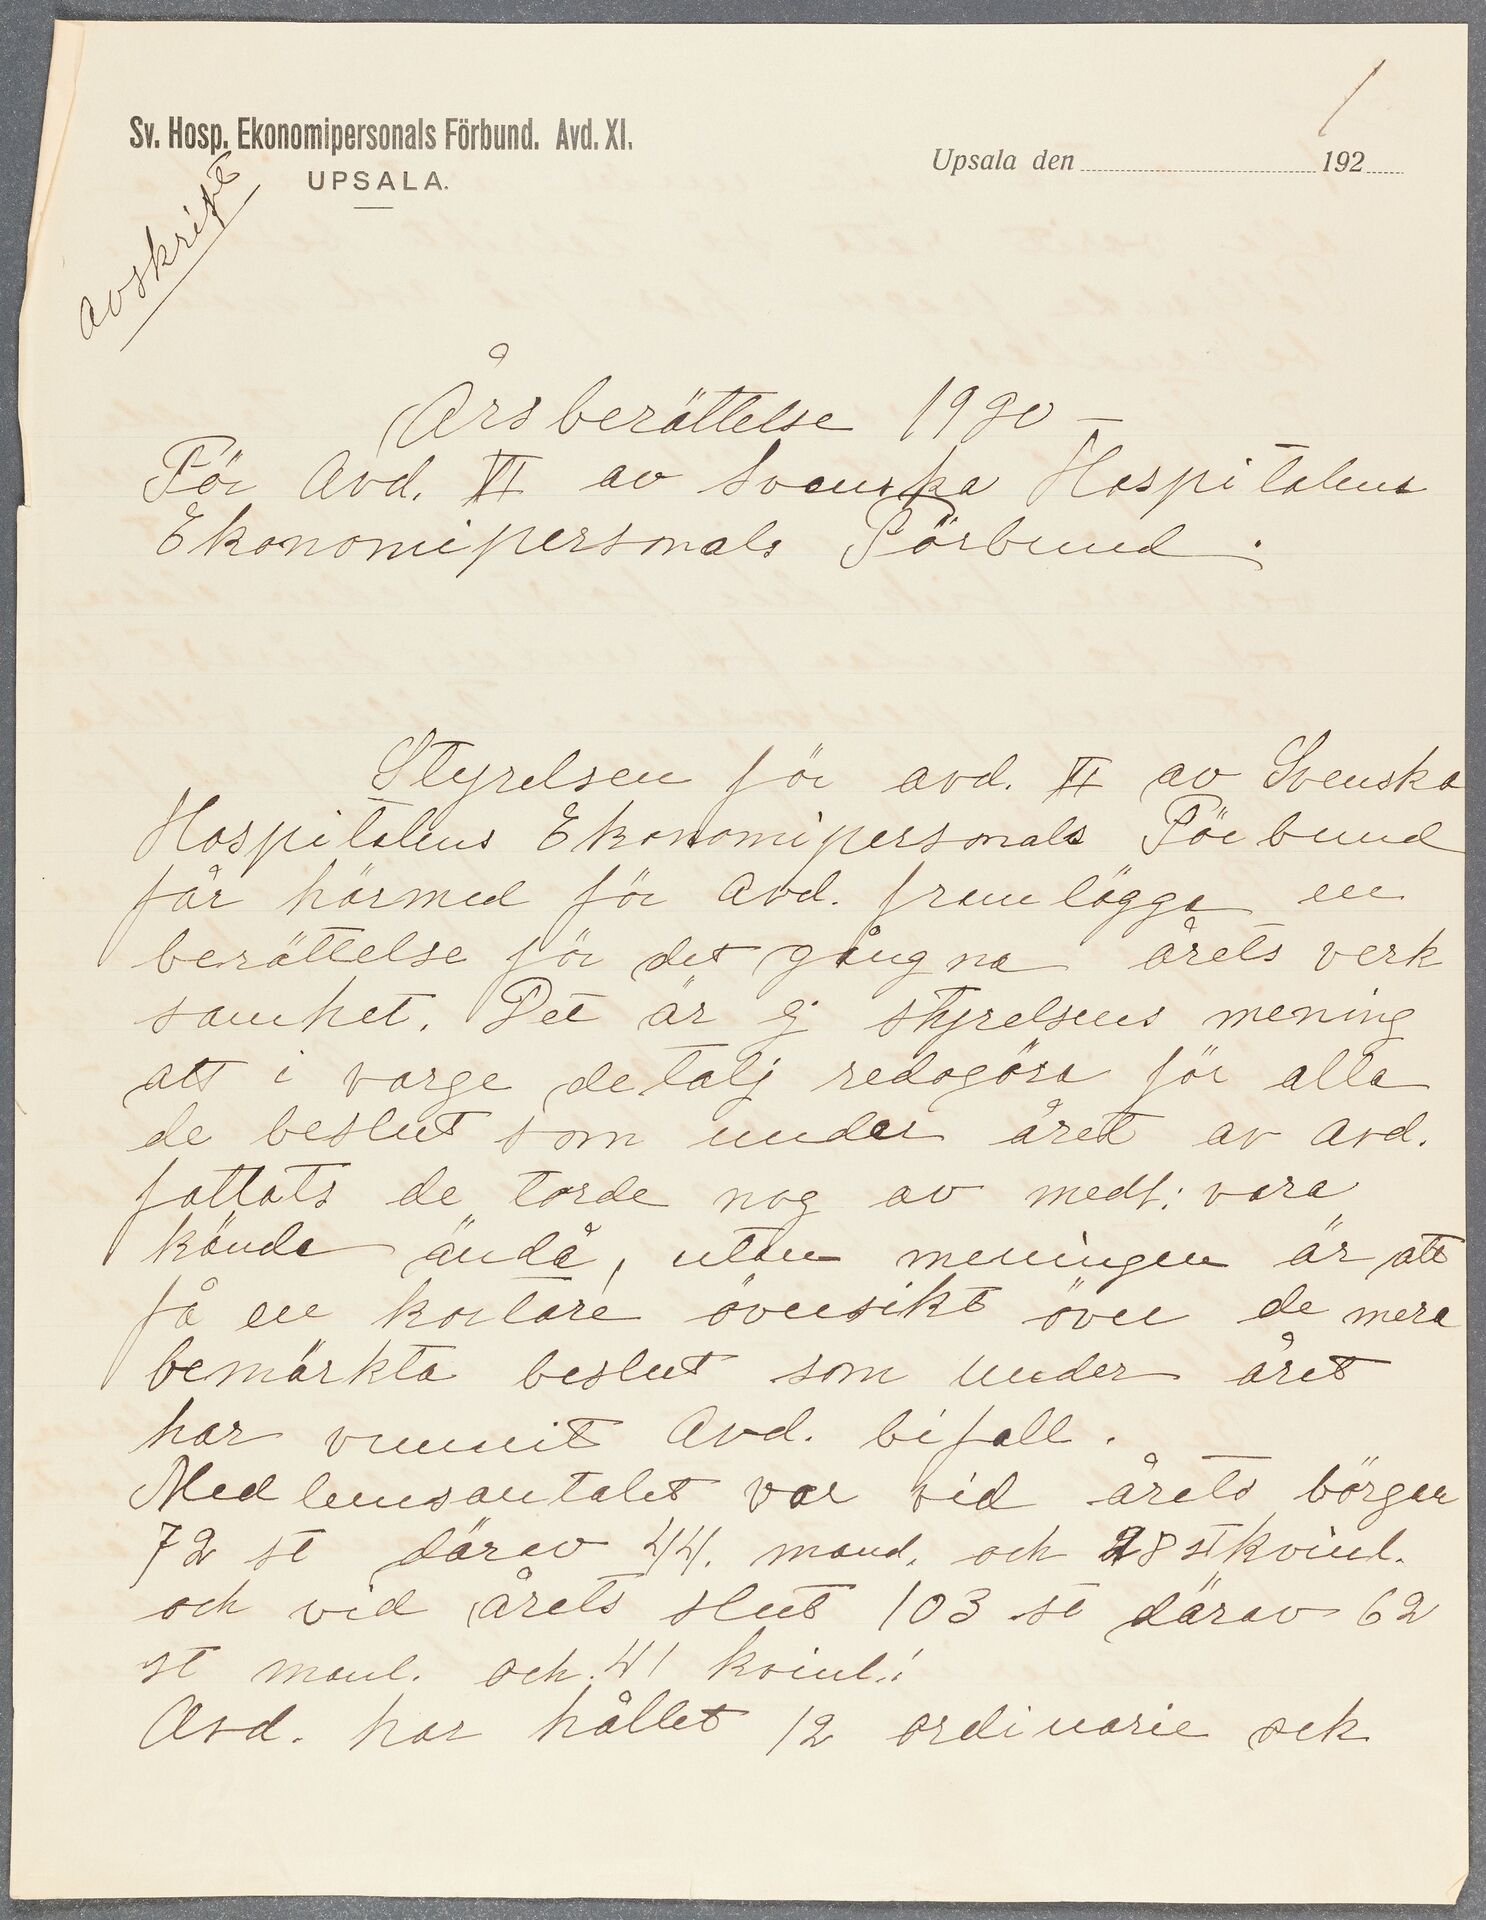 1
Sv. Hosp. Ekonomipersonals Förbund. Avd. XI.
UPSALA.
Upsala den 192
avskrift
Årsberättelse 1920 –
För Avd. XI av Svenska Hospitalens
Ekonomipersonals Förbund.
Styrelsen för avd. XI av Svenska
Hospitalens Ekonomipersonals Förbund
får härmed för Avd. framlägga en
berättelse för det gångna årets verk
samhet. Det är ej styrelsens mening
att i varge detalj redogöra för alla
de beslut som under året av Avd.
fattats de torde nog av medl: vara
kända ändå, utan meningen är att
få en kortare översikt över de mera
bemärkta beslut som under året
har vunnit Avd. bifall.
Medlemsantalet var vid årets börgan
72 st därav 44. manl. och 28 st kvinl.
och vid årets slut 103 st därav 62
st manl. och 41 kvinl.:
Avd. har hållet 12 ordinarie ock